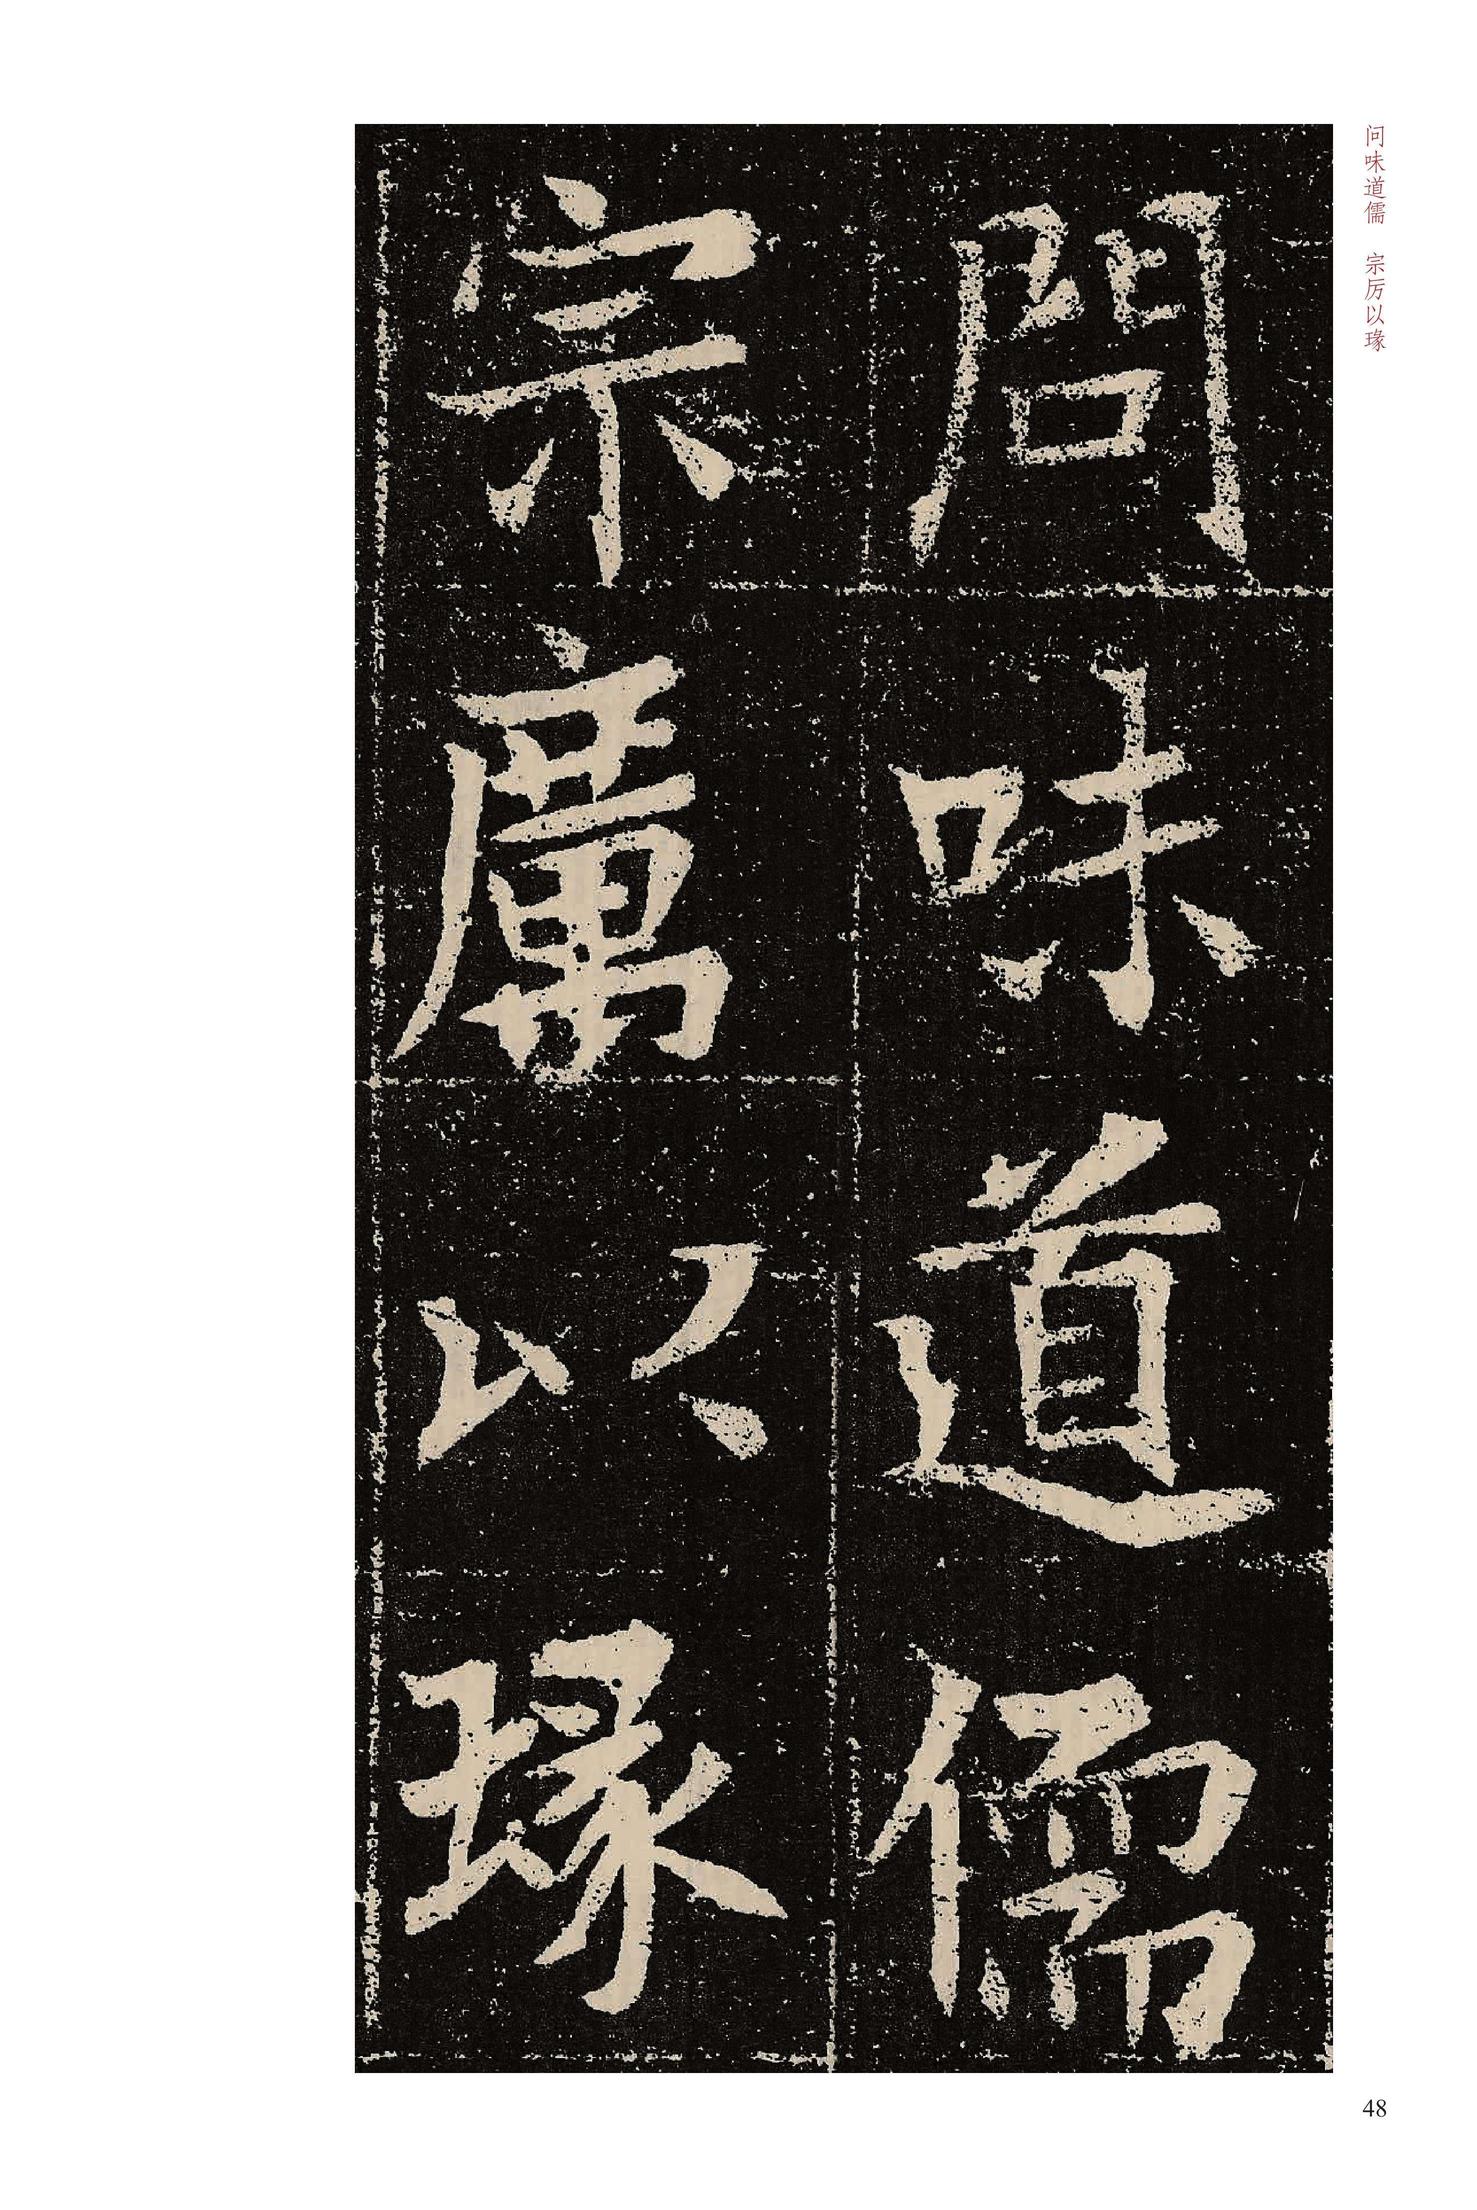 问味道儒 宗厉以瑑
問味道儒
宗厲以瑑
48